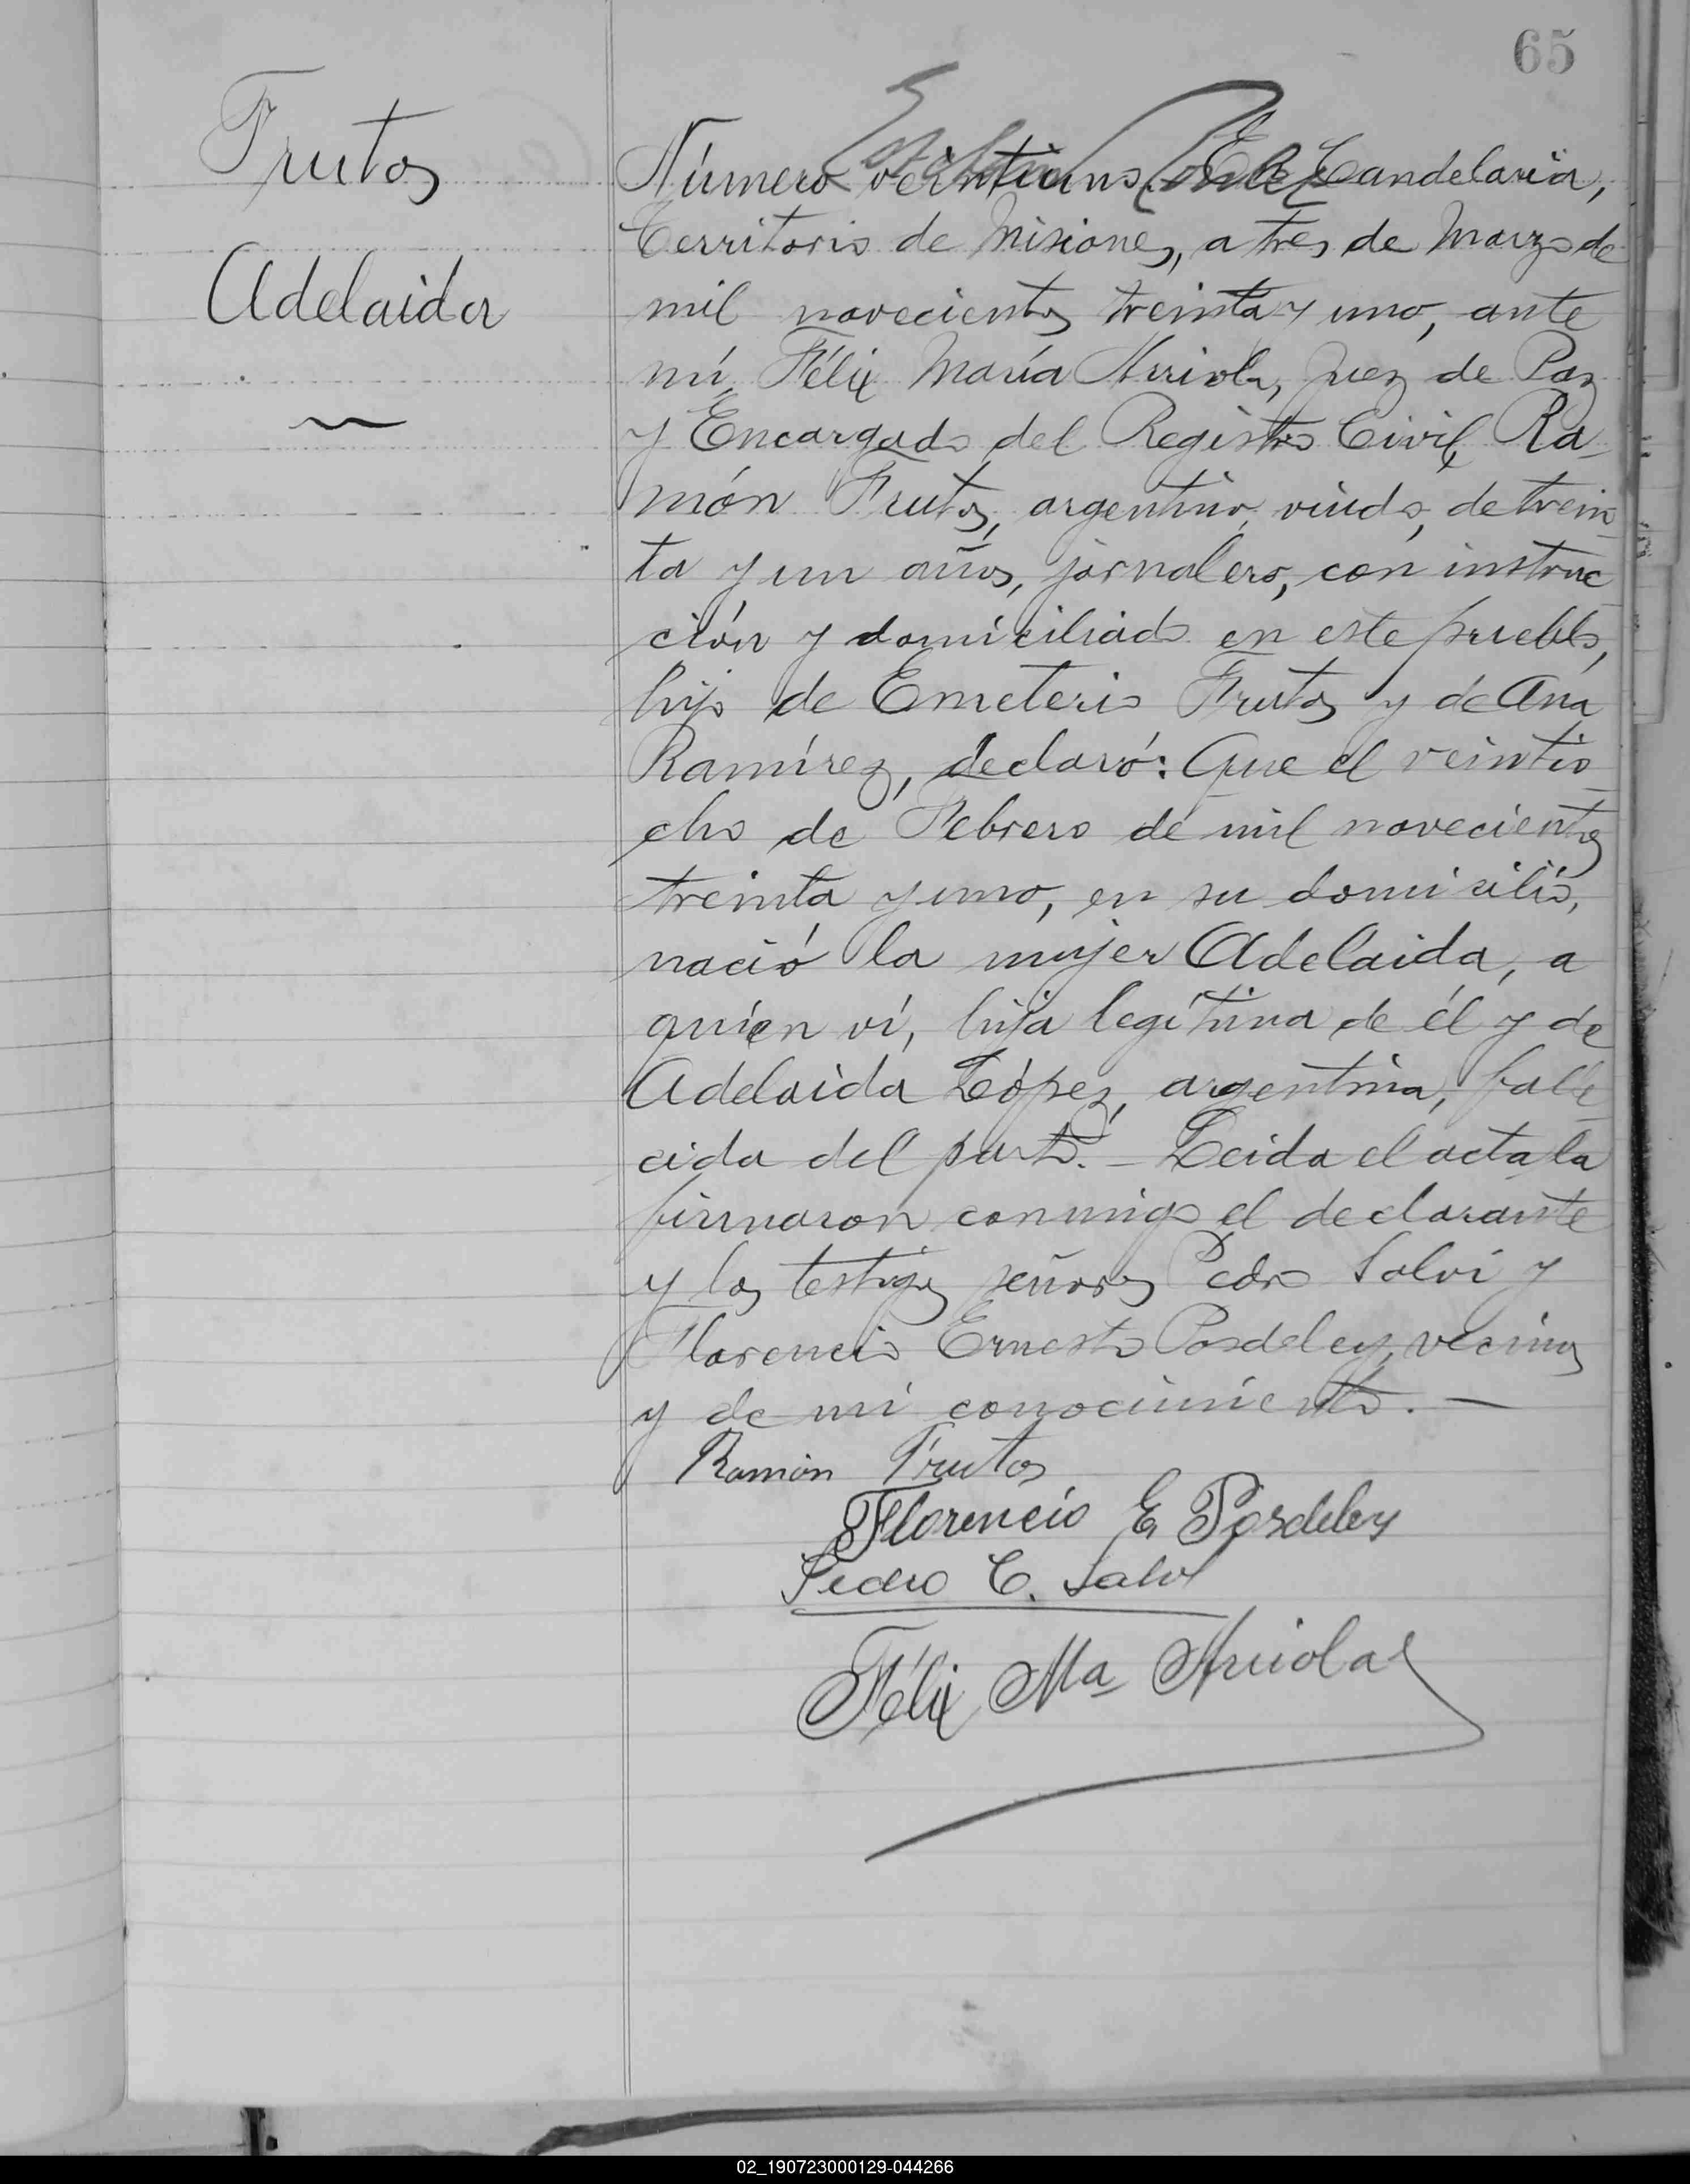 65
Frutos
Adelaida
Número veintiuno. En Candelaria,
Territorio de Misiones, a tres de Marzo de
mil novecientos treinta y uno, ante
mí, Félix María Arriola, Juez de Paz
y Encargado del Registro Civil, Ra-
món Frutos, argentino, viudo, de trein-
ta y un años, jornalero, con instruc-
ción y domiciliado en este pueblo,
hijo de Emeterio Frutos y de Ana
Ramírez, declaró: Que el veintio-
cho de Febrero de mil novecientos
treinta y uno, en su domicilio,
nació la mujer Adelaida, a
quien ví, hija legítima de él y de
Adelaida López, argentina, falle-
cida del parto. - Leida el acta la
firmaron conmigo el declarante
y los testigos señores Pedro Salvi y
Florencio Ernesto Posdeley, vecinos
y de mi conocimiento. —
Ramón Frutos
Florencio E Posdeley
Pedro C. Salvi
Félix Ma Arriola
02_190723000129-044266